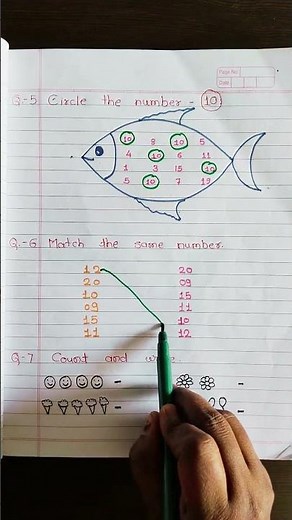 Page No.
Date
Q-5 Circle the number - 10
10 8 10 5
4 10 6 11
1 3 15 10
5 10 7 19
Q.-6 Match the same number.
12 20
20 09
10 15
09 11
15 10
11 12
Q-7 Count and write.